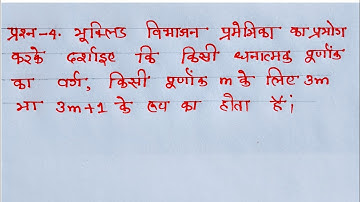 प्रश्न-4. यूक्लिड विभाजन प्रमेयिका का प्रयोग
करके दर्शाइए कि किसी धनात्मक पूर्णांक
का वर्ग, किसी पूर्णांक m के लिए 3m
या 3m+1 के रूप का होता है।